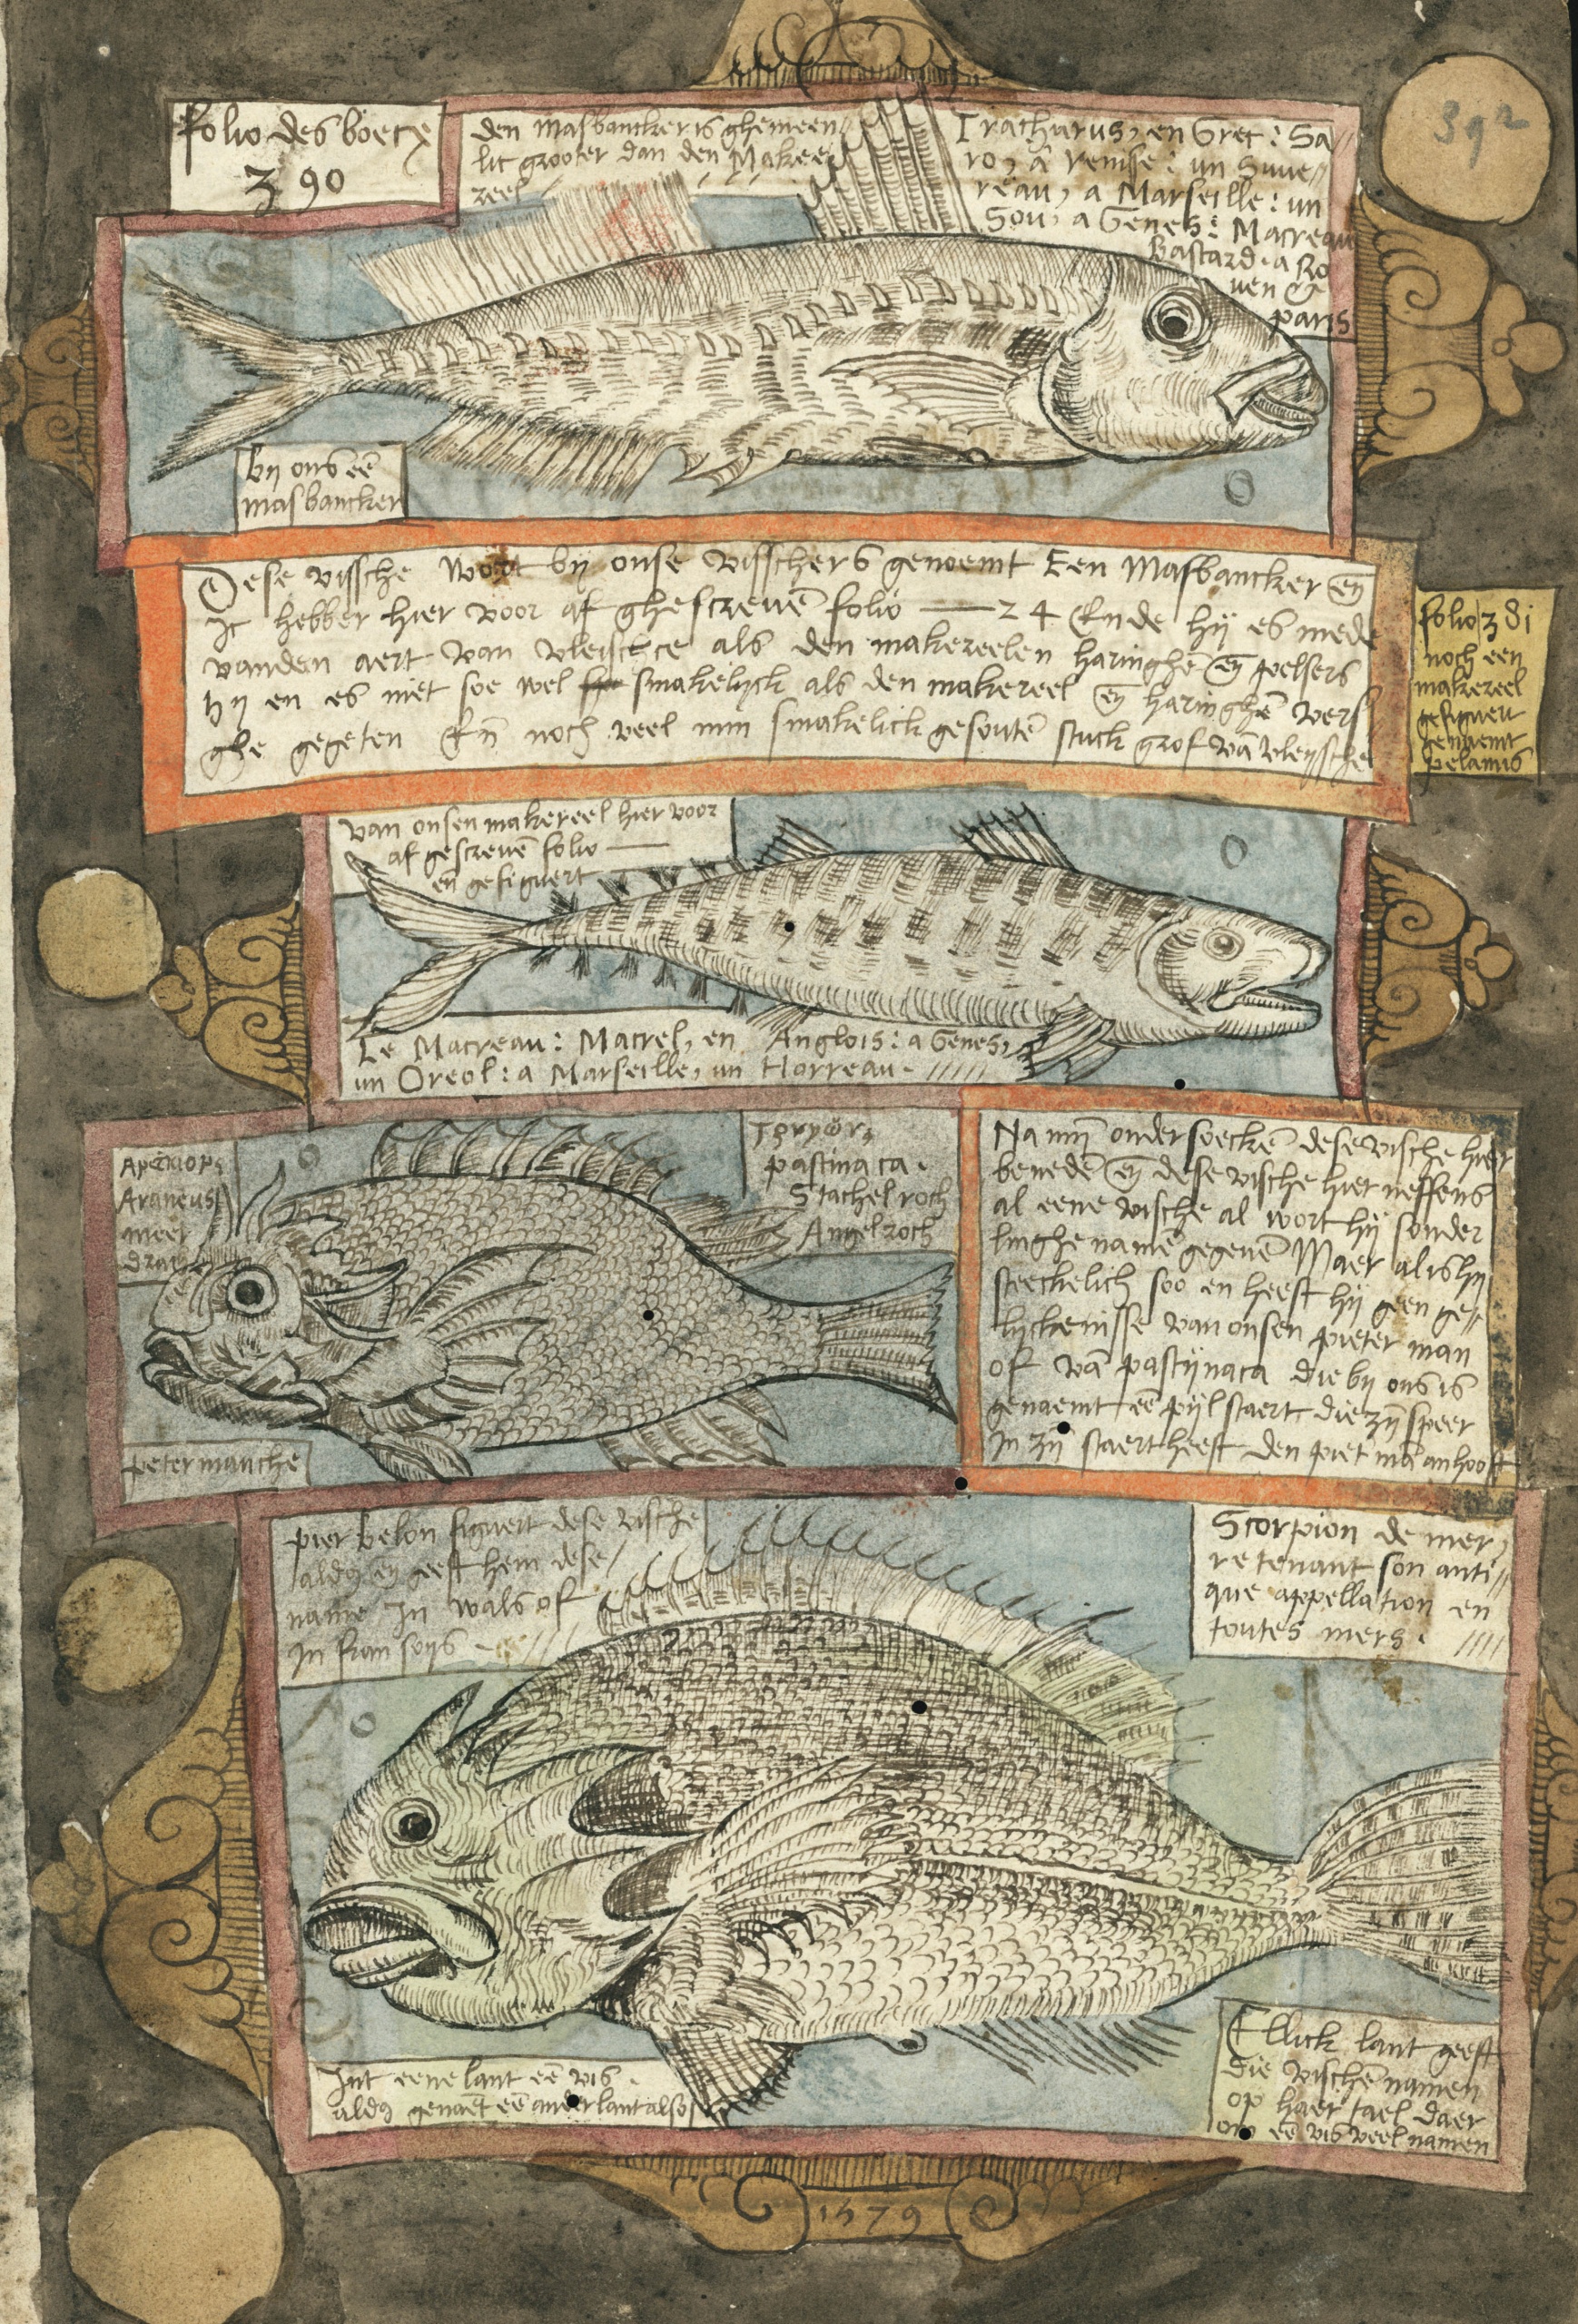 folio des boecx
390
392
den masbancker is ghemeen//
lic grooter dan den Makree//
reel
Tracharus, en Grec: Sa//
ro, a Venise: un Suve//
reau, a Marseille: un
Sou, a Genes: Macreau
Bastard. a Ro
uen &
paris
bij ons eē
masbancker
Dese vissche wort bij onse visschers genoemt Een Masbancker eñ
ic hebber hier voor af ghescreuē folio — 24 Ende hij es mede
vanden aert van vleissche als den makereelen haringhē eñ pelsers
hij en es niet soe wel smakelijck als den makereel eñ haringhē vers/
ghe gegeten Eñ noch veel min smakelick gesoutē stuck grof vā vleyssche
folio 381
noch een
makereel
gefiguert
genaemt
pelamis
van onsen makereel hier voor
af gescreuē folio —
eñ gefiguert
Le Macreau: Macrel, en Anglois: a Genes,
un Oreol: a Marseille, un Horreau. /////
Araneus
meer
petermanche
pastinaca.
Stachelroch
Angelroch
Na mijn ondersoeckē dese vische hier
benedē eñ dese vische hier neffens
al eene vische al wort hij sonder
linghe namē gegeuē Maer al is hij
steckelich soo en heeft hij geen ge//
lyckenisse van onsen pieter man
of vā pastijnaca die bij ons is
genaemt eē pijlstaert die zijn speer
in zijn staert heeft den piet mā an hooft
pier belon figuert dese vische
aldus eñ geeft hem dese/
name In wals of
In fransoijs - ////
Scorpion de mer,
retenant son anti//
que appellation en
toutes mers. ////
Int eene lant eē vis.
aldus genaēt eē ander lant alsoe
Ellick lant geeft
die vischē namen
op haer tael daer
om eē vis veel namen
1579